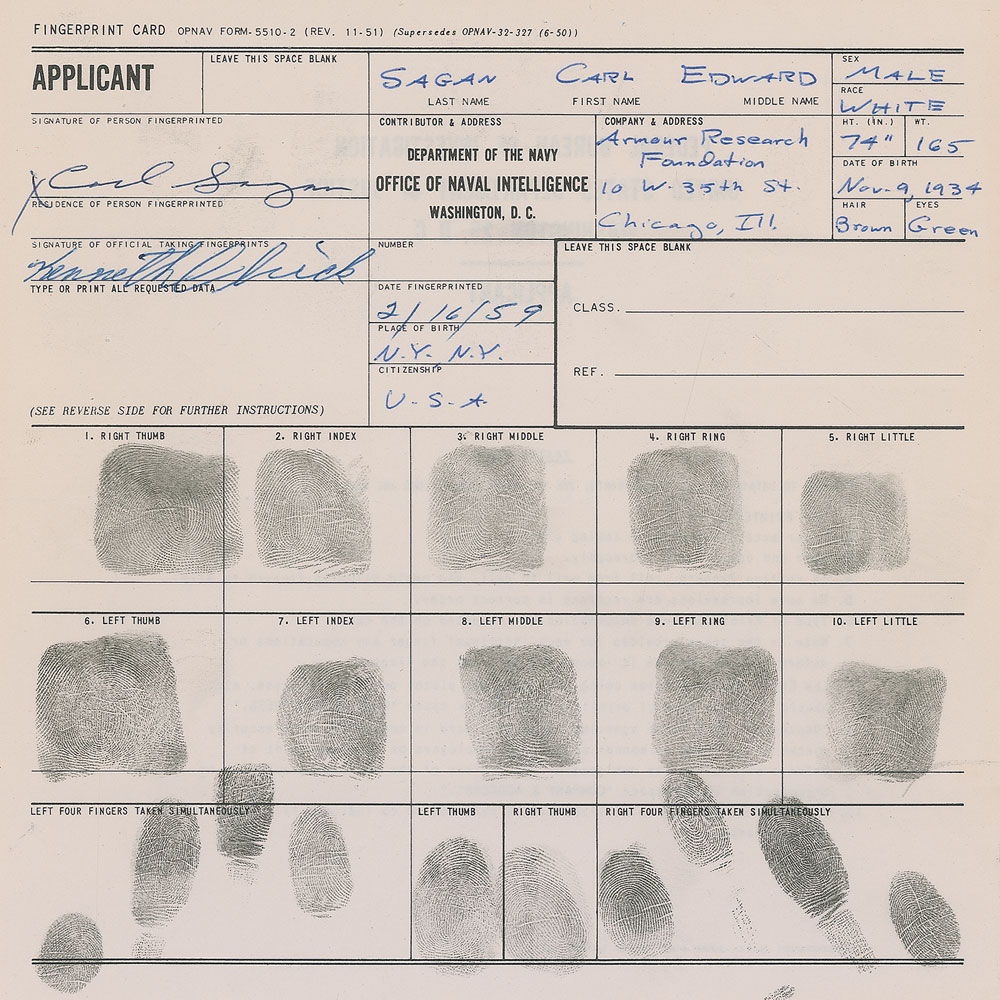 FINGERPRINT CARD OPNAV FORM-5510-2 (REV. 11-51) (Supersedes OPNAV-32-327 (6-50))
APPLICANT
LEAVE THIS SPACE BLANK
SAGAN CARL EDWARD
LAST NAME FIRST NAME MIDDLE NAME
SEX
MALE
RACE
WHITE
SIGNATURE OF PERSON FINGERPRINTED
Carl Sagan
RESIDENCE OF PERSON FINGERPRINTED
CONTRIBUTOR & ADDRESS
DEPARTMENT OF THE NAVY
OFFICE OF NAVAL INTELLIGENCE
WASHINGTON, D. C.
COMPANY & ADDRESS
Armour Research
Foundation
10 W. 35th St.
Chicago, Ill.
HT. (IN.) WT.
74" 165
DATE OF BIRTH
Nov. 9, 1934
HAIR EYES
Brown Green
SIGNATURE OF OFFICIAL TAKING FINGERPRINTS
Kenneth
TYPE OR PRINT ALL REQUESTED DATA
(SEE REVERSE SIDE FOR FURTHER INSTRUCTIONS)
NUMBER
DATE FINGERPRINTED
2/16/59
PLACE OF BIRTH
N.Y., N.Y.
CITIZENSHIP
U.S.A
LEAVE THIS SPACE BLANK
CLASS.
REF.
1. RIGHT THUMB 2. RIGHT INDEX 3. RIGHT MIDDLE 4. RIGHT RING 5. RIGHT LITTLE
6. LEFT THUMB 7. LEFT INDEX 8. LEFT MIDDLE 9. LEFT RING 10. LEFT LITTLE
LEFT FOUR FINGERS TAKEN SIMULTANEOUSLY LEFT THUMB RIGHT THUMB RIGHT FOUR FINGERS TAKEN SIMULTANEOUSLY